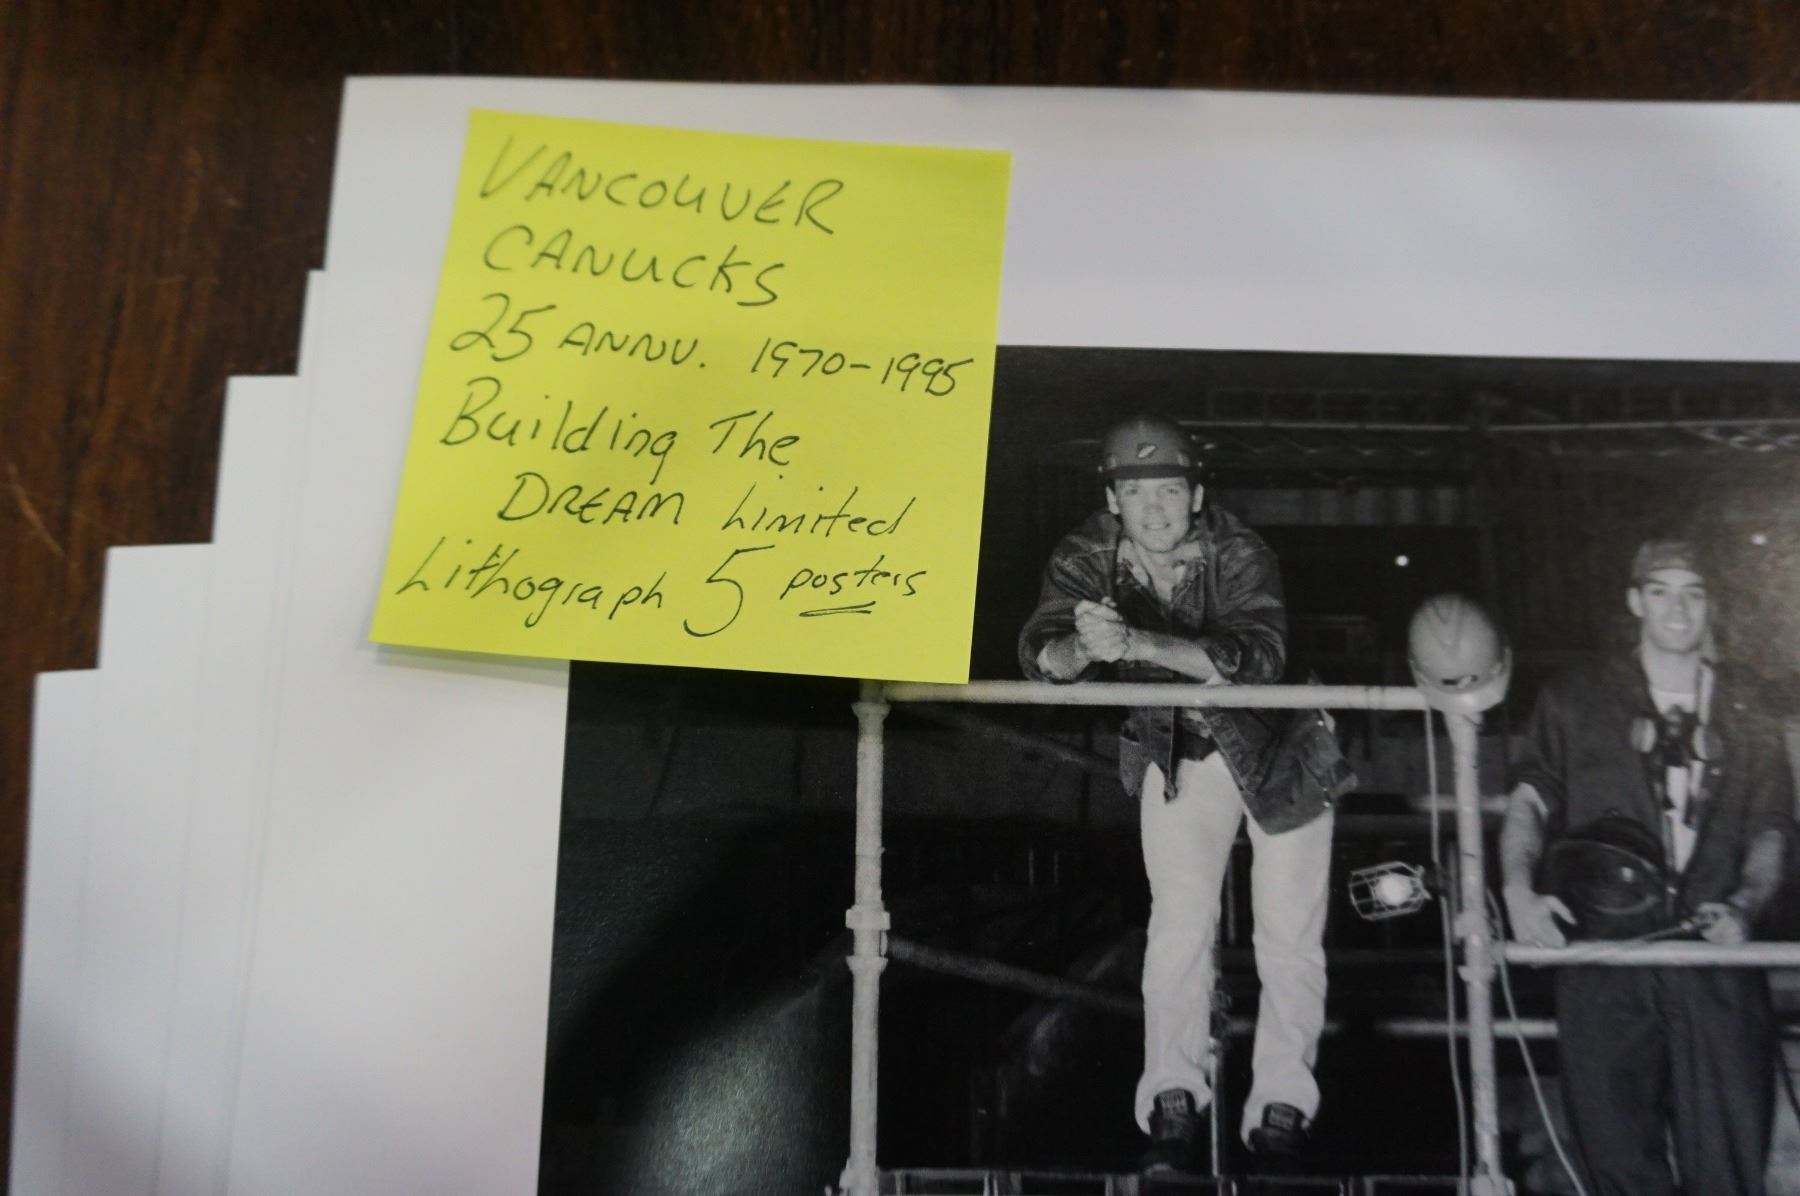 VANCOUVER
CANUCKS
25 ANNV. 1970-1995
Building The
DREAM Limited
Lithograph 5 posters